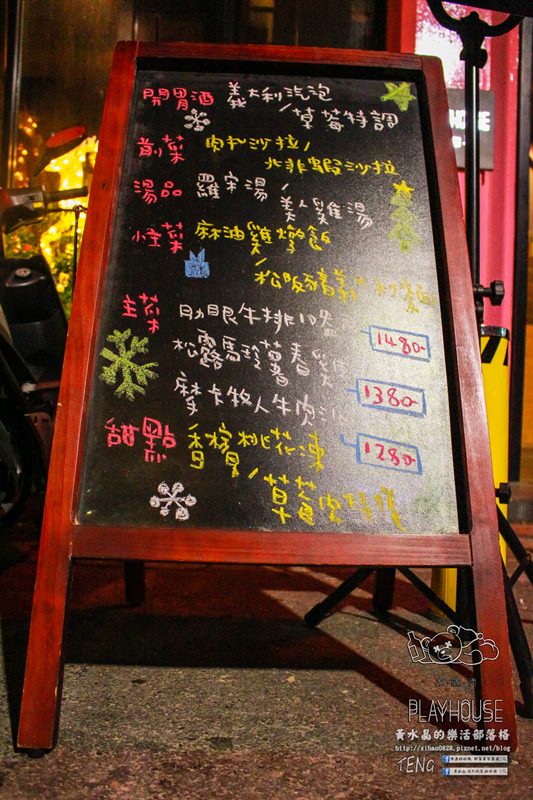 開胃酒 義大利汽泡/
草莓特調
前菜 肉扎沙拉/
北非蝦沙拉
湯品 羅宋湯/
美人雞湯
小主菜 麻油雞燉飯
/松阪豬義大利麵
主菜 肋眼牛排10盎
1480-
松露馬玲薯春雞
1380-
摩卡牧人牛肉
1280-
甜點 香檳桃花凍
/草莓
PLAYHOUSE
黃水晶的樂活部落格
http://sihan0828.pixnet.net/blog
TENG